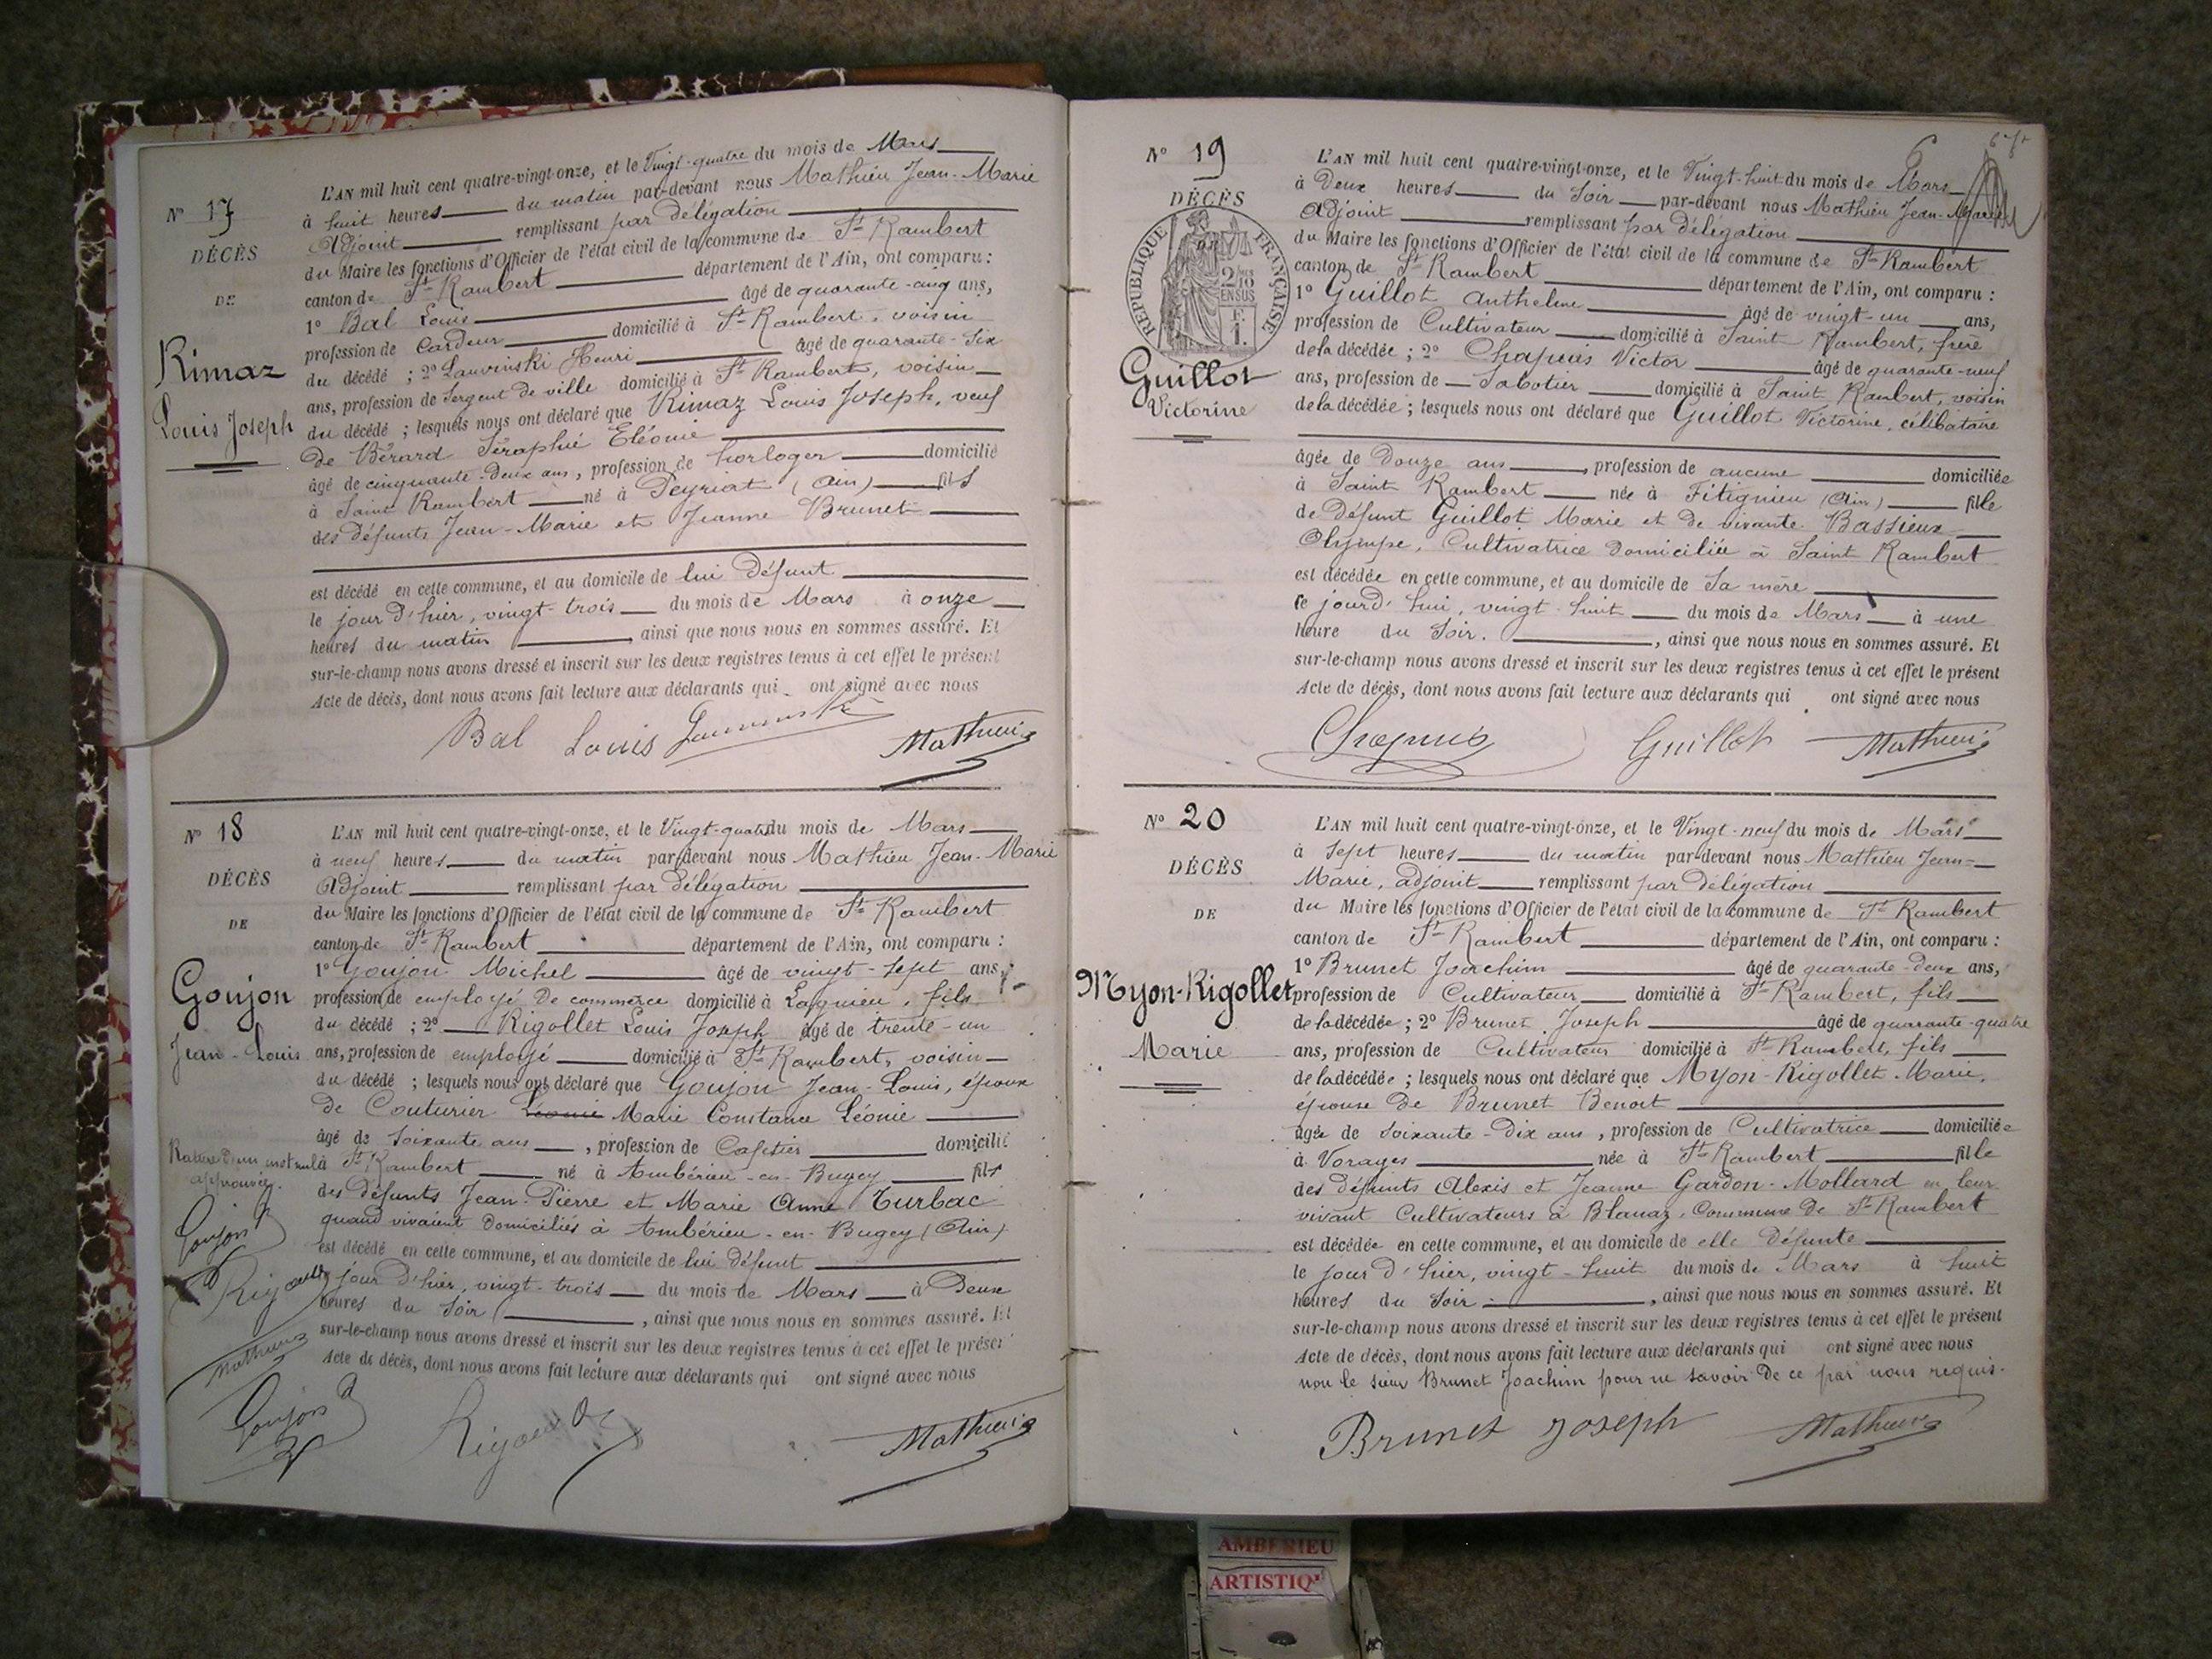 N° 17
DÉCÈS
DE
Rimaz
Louis Joseph
L'AN mil huit cent quatre-vingt-onze, et le Vingt-quatre du mois de Mars
à huit heures du matin par-devant nous Mathieu Jean-Marie
Adjoint remplissant par délégation
du Maire les fonctions d'Officier de l'état civil de la commune de St Rambert
canton de St Rambert département de l'Ain, ont comparu :
1° Bal Louis âgé de quarante-cinq ans,
profession de Cardeur domicilié à St Rambert, voisin
du décédé ; 2° Lauvinski Henri âgé de quarante-six
ans, profession de Sergent de ville domicilié à St Rambert, voisin
du décédé ; lesquels nous ont déclaré que Rimaz Louis Joseph, veuf
de Bérard Séraphie Eléonie
âgé de cinquante-deux ans, profession de horloger domicilié
à Saint Rambert né à Peyriat (Ain) fils
des défunts Jean-Marie et Jeanne Brunet
est décédé en cette commune, et au domicile de lui défunt
le jour d'hier, vingt-trois du mois de Mars à onze
heures du matin, ainsi que nous nous en sommes assuré. Et
sur-le-champ nous avons dressé et inscrit sur les deux registres tenus à cet effet le présent
Acte de décès, dont nous avons fait lecture aux déclarants qui ont signé avec nous
Bal Louis Mathieu
N° 18
DÉCÈS
DE
Goujon
Jean-Louis
L'AN mil huit cent quatre-vingt-onze, et le Vingt-quatre du mois de Mars
à neuf heures du matin par-devant nous Mathieu Jean-Marie
Adjoint remplissant par délégation
du Maire les fonctions d'Officier de l'état civil de la commune de St Rambert
canton de St Rambert département de l'Ain, ont comparu :
1° Goujon Michel âgé de vingt-sept ans,
profession de employé de commerce domicilié à Lagnieu, fils
du décédé ; 2° Rigollet Louis Joseph âgé de trente-un
ans, profession de employé domicilié à St Rambert, voisin
du décédé ; lesquels nous ont déclaré que Goujon Jean-Louis, époux
de Couturier Léonie Marie Constance Léonie
âgé de soixante ans, profession de Cafetier domicilié
à St Rambert né à Ambérieu-en-Bugey fils
des défunts Jean-Pierre et Marie Anne Turbac
quand vivaient domiciliés à Ambérieu-en-Bugey (Ain)
est décédé en cette commune, et au domicile de lui défunt
jour d'hier, vingt-trois du mois de Mars à Deux
heures du soir, ainsi que nous nous en sommes assuré. Et
sur-le-champ nous avons dressé et inscrit sur les deux registres tenus à cet effet le présent
Acte de décès, dont nous avons fait lecture aux déclarants qui ont signé avec nous
Rature d'un mot nul
approuvée.
Goujon
Mathieu
Goujon Mathieu
N° 19
DÉCÈS
RÉPUBLIQUE FRANÇAISE
2/10 EN SUS
F. 1.
Guillot
Victorine
L'AN mil huit cent quatre-vingt-onze, et le Vingt-huit du mois de Mars
à Deux heures du Soir par-devant nous Mathieu Jean-Marie
Adjoint remplissant par délégation
du Maire les fonctions d'Officier de l'état civil de la commune de St Rambert
canton de St Rambert département de l'Ain, ont comparu :
1° Guillot Anthelme âgé de vingt-un ans,
profession de Cultivateur domicilié à Saint Rambert, frère
de la décédée ; 2° Chapuis Victor âgé de quarante-neuf
ans, profession de Sabotier domicilié à Saint Rambert, voisin
de la décédée ; lesquels nous ont déclaré que Guillot Victorine, célibataire
âgée de douze ans, profession de aucune domiciliée
à Saint Rambert née à Fitignieu (Ain) fille
de défunt Guillot Marie et de vivante Bassieux
Olympe, Cultivatrice domiciliée à Saint Rambert
est décédée en cette commune, et au domicile de sa mère
le jourd'hui, vingt-huit du mois de Mars à une
heure du soir., ainsi que nous nous en sommes assuré. Et
sur-le-champ nous avons dressé et inscrit sur les deux registres tenus à cet effet le présent
Acte de décès, dont nous avons fait lecture aux déclarants qui ont signé avec nous
Chapuis Guillot Mathieu
N° 20
DÉCÈS
DE
Myon-Rigollet
Marie
L'AN mil huit cent quatre-vingt-onze, et le Vingt-neuf du mois de Mars
à sept heures du matin par-devant nous Mathieu Jean-
Marie, adjoint remplissant par délégation
du Maire les fonctions d'Officier de l'état civil de la commune de St Rambert
canton de St Rambert département de l'Ain, ont comparu :
1° Brunet Joachim âgé de quarante-deux ans,
profession de Cultivateur domicilié à St Rambert, fils
de la décédée ; 2° Brunet Joseph âgé de quarante-quatre
ans, profession de Cultivateur domicilié à St Rambert, fils
de la décédée ; lesquels nous ont déclaré que Myon-Rigollet Marie,
épouse de Brunet Benoit
âgée de soixante-dix ans, profession de Cultivatrice domiciliée
à Vorages née à St Rambert fille
des défunts Alexis et Jeanne Gardon-Mollard en leur
vivant Cultivateurs à Blanaz, Commune de St Rambert
est décédée en cette commune, et au domicile de elle défunte
le jour d'hier, vingt-huit du mois de Mars à huit
heures du soir, ainsi que nous nous en sommes assuré. Et
sur-le-champ nous avons dressé et inscrit sur les deux registres tenus à cet effet le présent
Acte de décès, dont nous avons fait lecture aux déclarants qui ont signé avec nous
non le sieur Brunet Joachim pour ne savoir de ce par nous requis.
Brunet Joseph Mathieu
AMBERIEU
ARTISTIQ